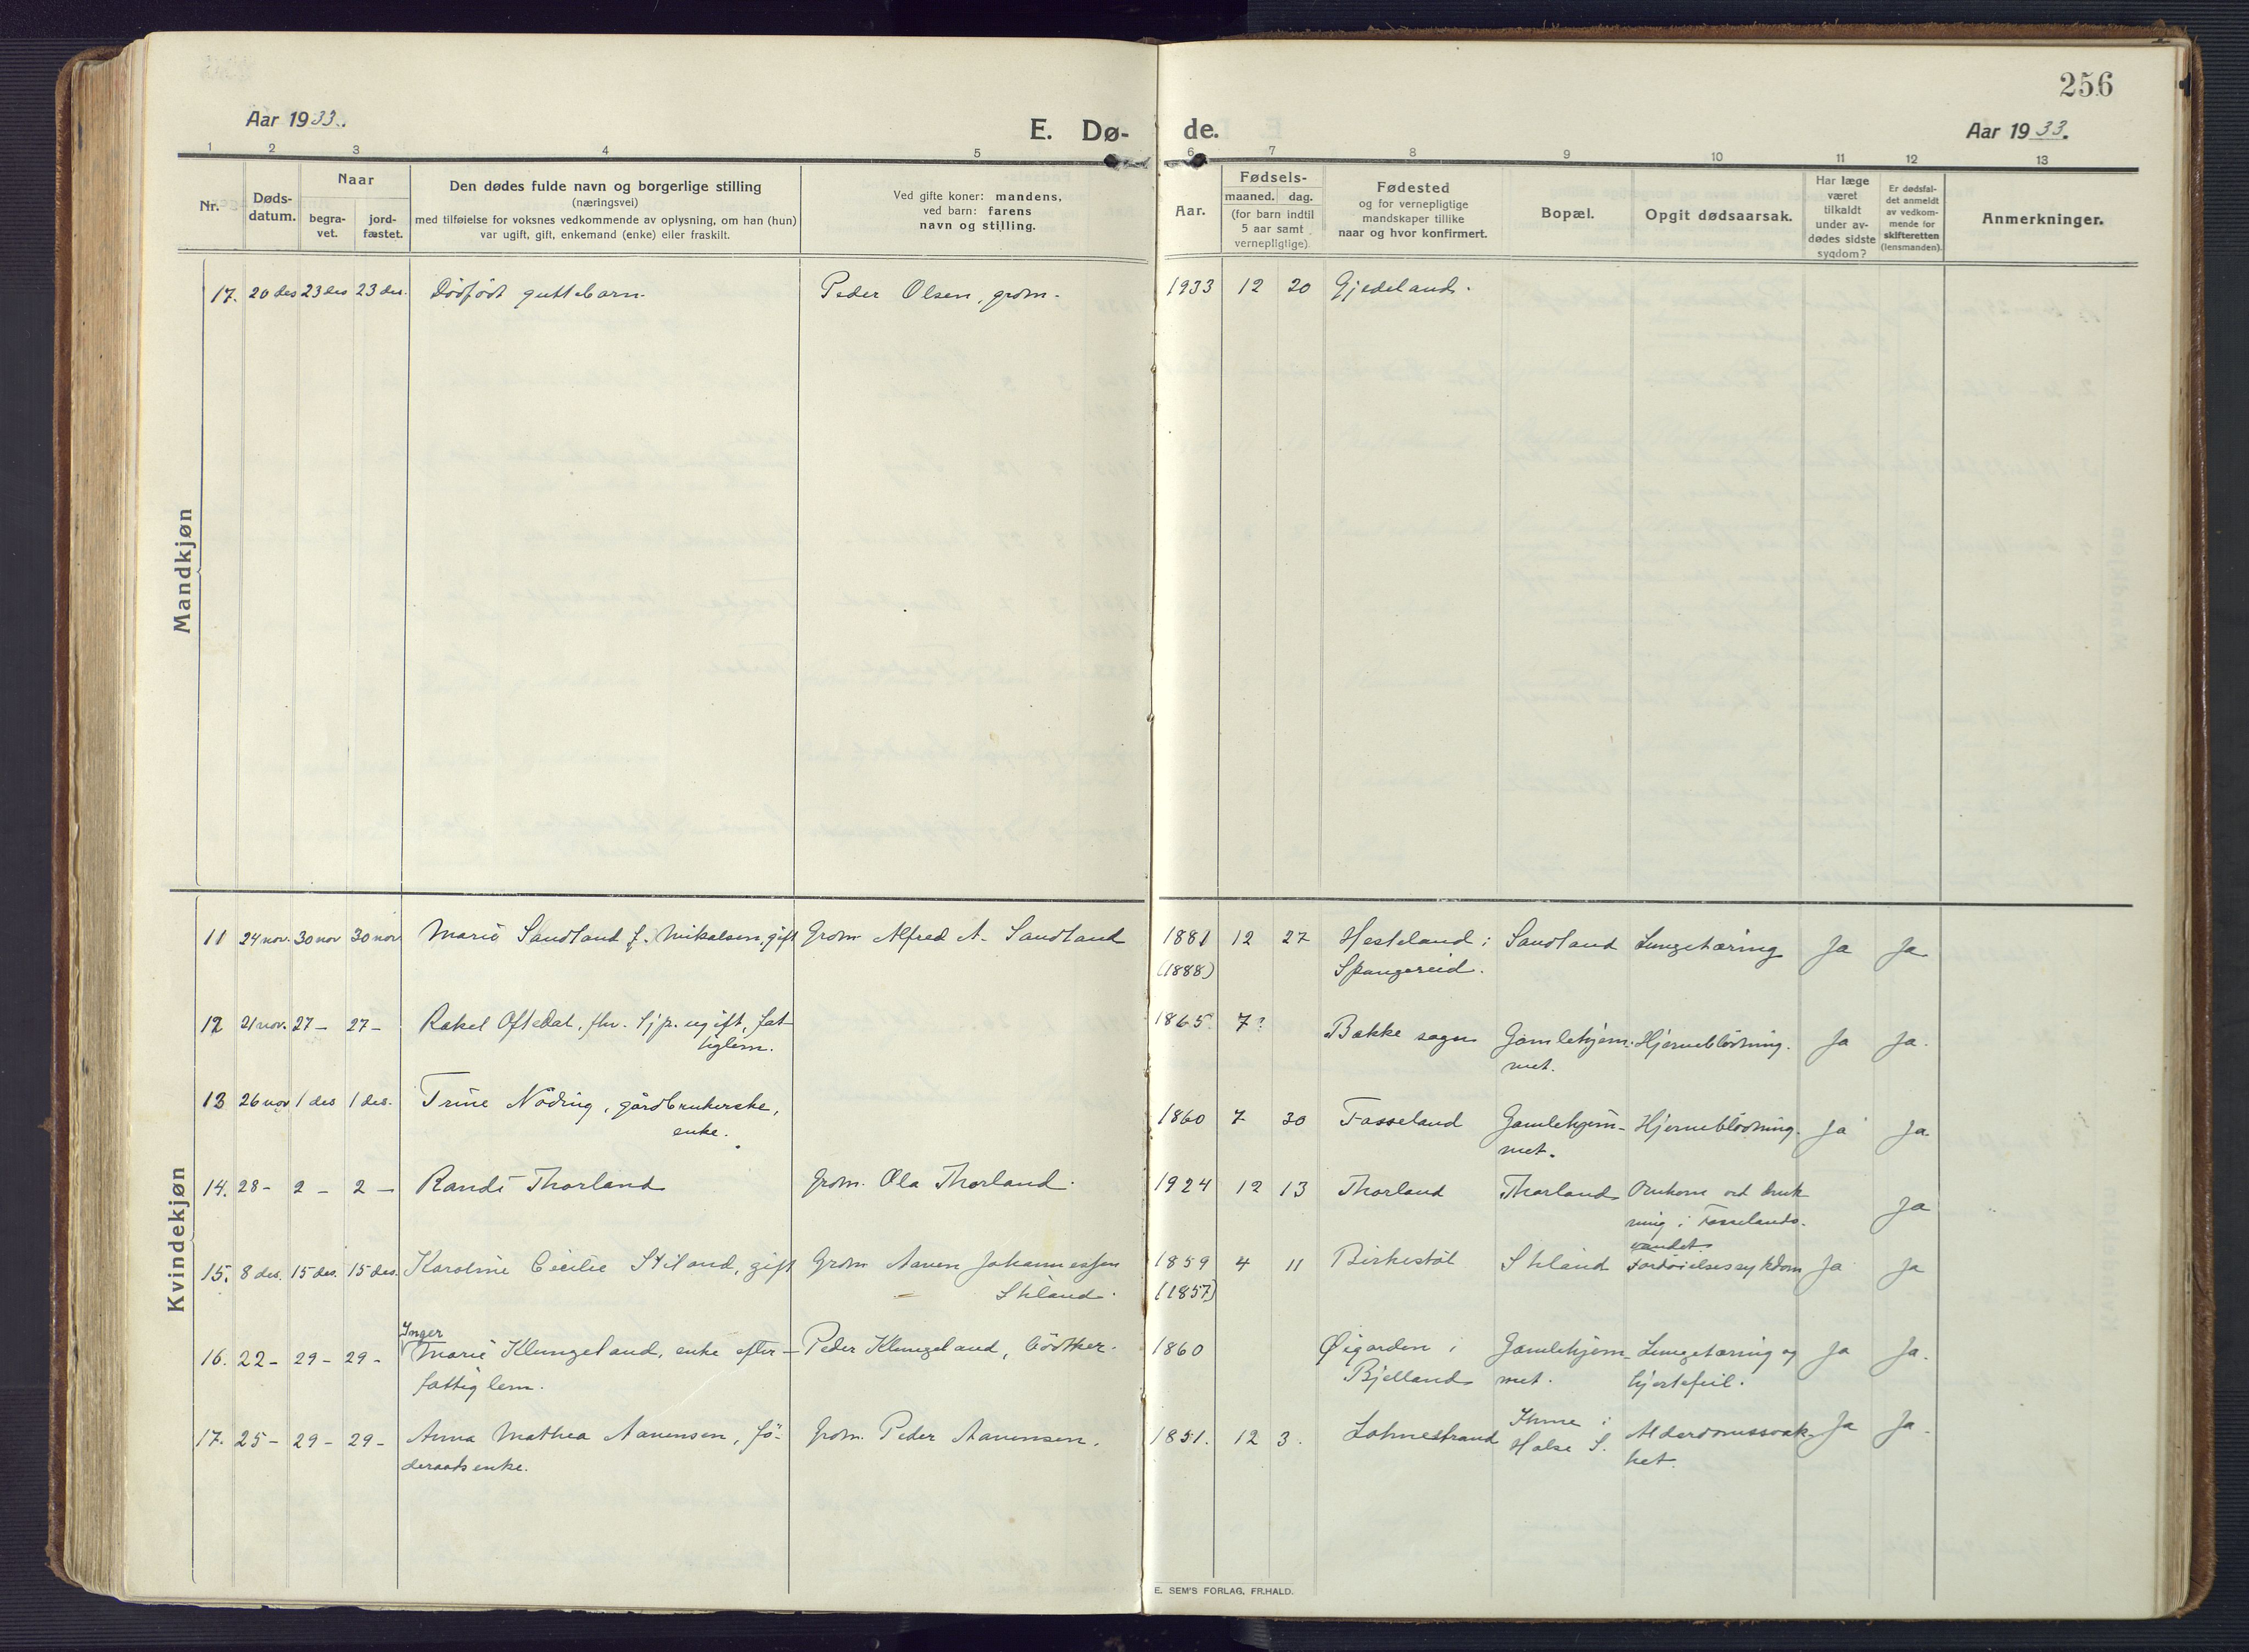 256
Aar 1933.
E. Dø- de.
Aar 1933.
1 2 3 4 5 6 7 8 9 10 11 12 13
Nr.
Døds-
datum.
Naar
begra-
vet.
jord-
fæstet.
Den dødes fulde navn og borgerlige stilling
(næringsvei)
med tilføielse for voksnes vedkommende av oplysning, om han (hun)
var ugift, gift, enkemand (enke) eller fraskilt.
Ved gifte koner: mandens,
ved barn: farens
navn og stilling.
Aar.
Fødsels-
maaned. dag.
(for barn indtil
5 aar samt
vernepligtige)
Fødested
og for vernepligtige
mandskaper tillike
naar og hvor konfirmert.
Bopæl.
Opgit dødsaarsak.
Har læge
været
tilkaldt
under av-
dødes sidste
sygdom?
Er dødsfal-
det anmeldt
av vedkom-
mende for
skifteretten
(lensmanden).
Anmerkninger.
Mandkjøn
17. 20 des 23 des 23 des. Dödfödt guttebarn. Peder Olsen, grdm. 1933 12 20 Gjedeland.
Kvindekjøn
11 24 nov. 30 nov 30 nov Marie Sandland f. Mikalsen, gift Grdm Alfred A. Sandland 1881 12 27 Hesteland i Sandland Lungetæring Ja Ja
(1888) Spangereid.
12 21 nov. 27 – 27 – Rakel Oftedal, fhv. tjp. ugift, fat- 1865 7? Bakke sogn Gamlehjem- Hjerneblödning. Ja Ja.
tiglem. met.
13 26 nov 1 des 1 des. Trine Nöding, gårdbrukerske, 1860 7 30 Fasseland Gamlehjem- Hjerneblödning. Ja Ja.
enke. met.
14. 28 – 2 – 2 – Randi Thorland Grdm. Ola Thorland. 1924 12 13 Thorland Thorland Omkom ved druk-
ning i Fasselands- Ja
vandet.
15. 8 des. 15 des. 15 des. Karoline Cecilie Stiland, gift Grdm Aanen Johannessen 1859 4 11 Birkestöl Stiland Fordöielsessykdom Ja Ja
Stiland. (1857)
Inger
16. 22 – 29 – 29 – Marie Klungeland, enke efter – Peder Klungeland, bödker. 1860 Øigarden i Gamlehjem- Lungetæring og Ja Ja.
fattiglem. Bjelland met. hjertefeil.
17. 25 – 29 – 29 – Anna Mathea Aanensen, fö- Grdm. Peder Aanensen. 1851. 12 3. Lohnestrand Ihme i Alderdomssvak- Ja Ja.
deraadsenke. Halse S. het.
E. SEM'S FORLAG, FR.HALD.